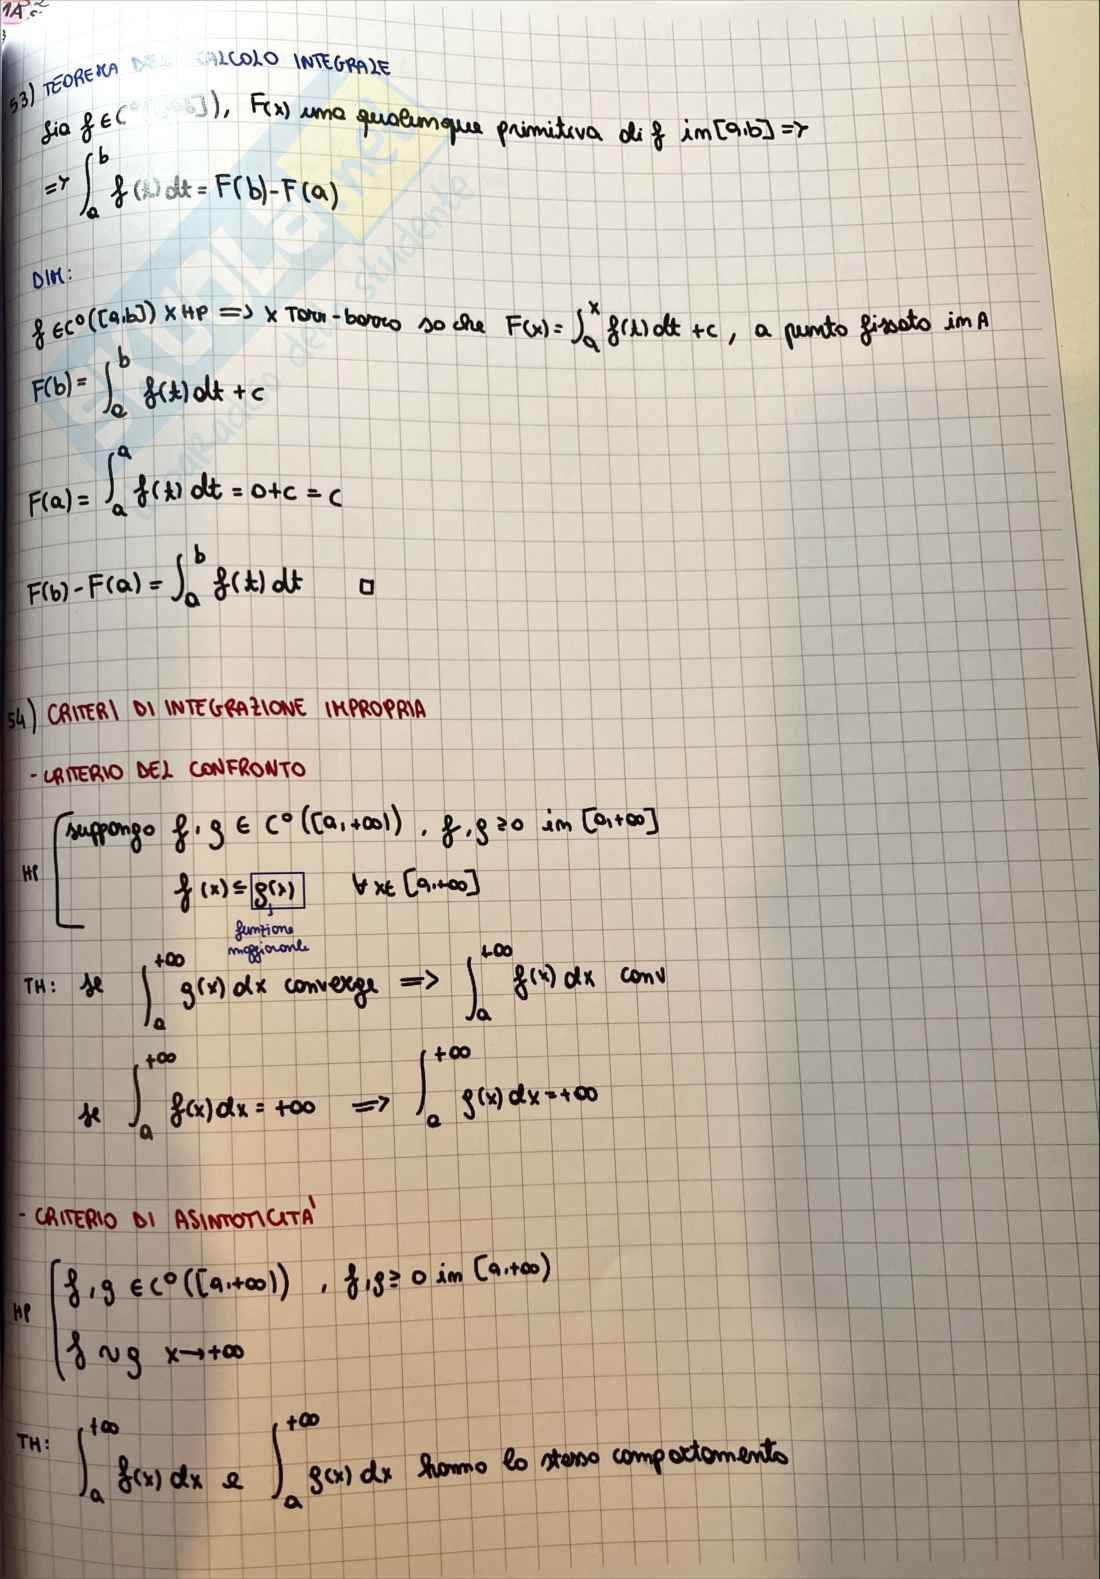 1A
53) TEOREMA DEL CALCOLO INTEGRALE
Sia f ∈ C⁰([a,b]), F(x) una qualunque primitiva di f in [a,b] =>
=> ∫ₐᵇ f(t) dt = F(b)-F(a)
DIM:
f ∈ C⁰([a,b]) x HP => x Torr-barro so che F(x) = ∫ₐˣ f(t) dt + c, a punto fissato in A
F(b) = ∫ₐᵇ f(t) dt + c
F(a) = ∫ₐᵃ f(t) dt = 0+c = c
F(b) - F(a) = ∫ₐᵇ f(t) dt □
54) CRITERI DI INTEGRAZIONE IMPROPRIA
- CRITERIO DEL CONFRONTO
suppongo f, g ∈ C⁰([a,+∞)), f,g ≥ 0 in [a,+∞]
HP
f(x) ≤ g(x) ∀ x ∈ [a,+∞]
funzione
maggiorante
TH: se ∫ₐ⁺∞ g(x) dx converge => ∫ₐ⁺∞ f(x) dx conv
se ∫ₐ⁺∞ f(x) dx = +∞ => ∫ₐ⁺∞ g(x) dx = +∞
- CRITERIO DI ASINTOTICITÀ
f, g ∈ C⁰([a,+∞)), f,g ≥ 0 in [a,+∞)
HP
f ~ g x→+∞
TH: ∫ₐ⁺∞ f(x) dx e ∫ₐ⁺∞ g(x) dx hanno lo stesso comportamento
SKUOLA.net